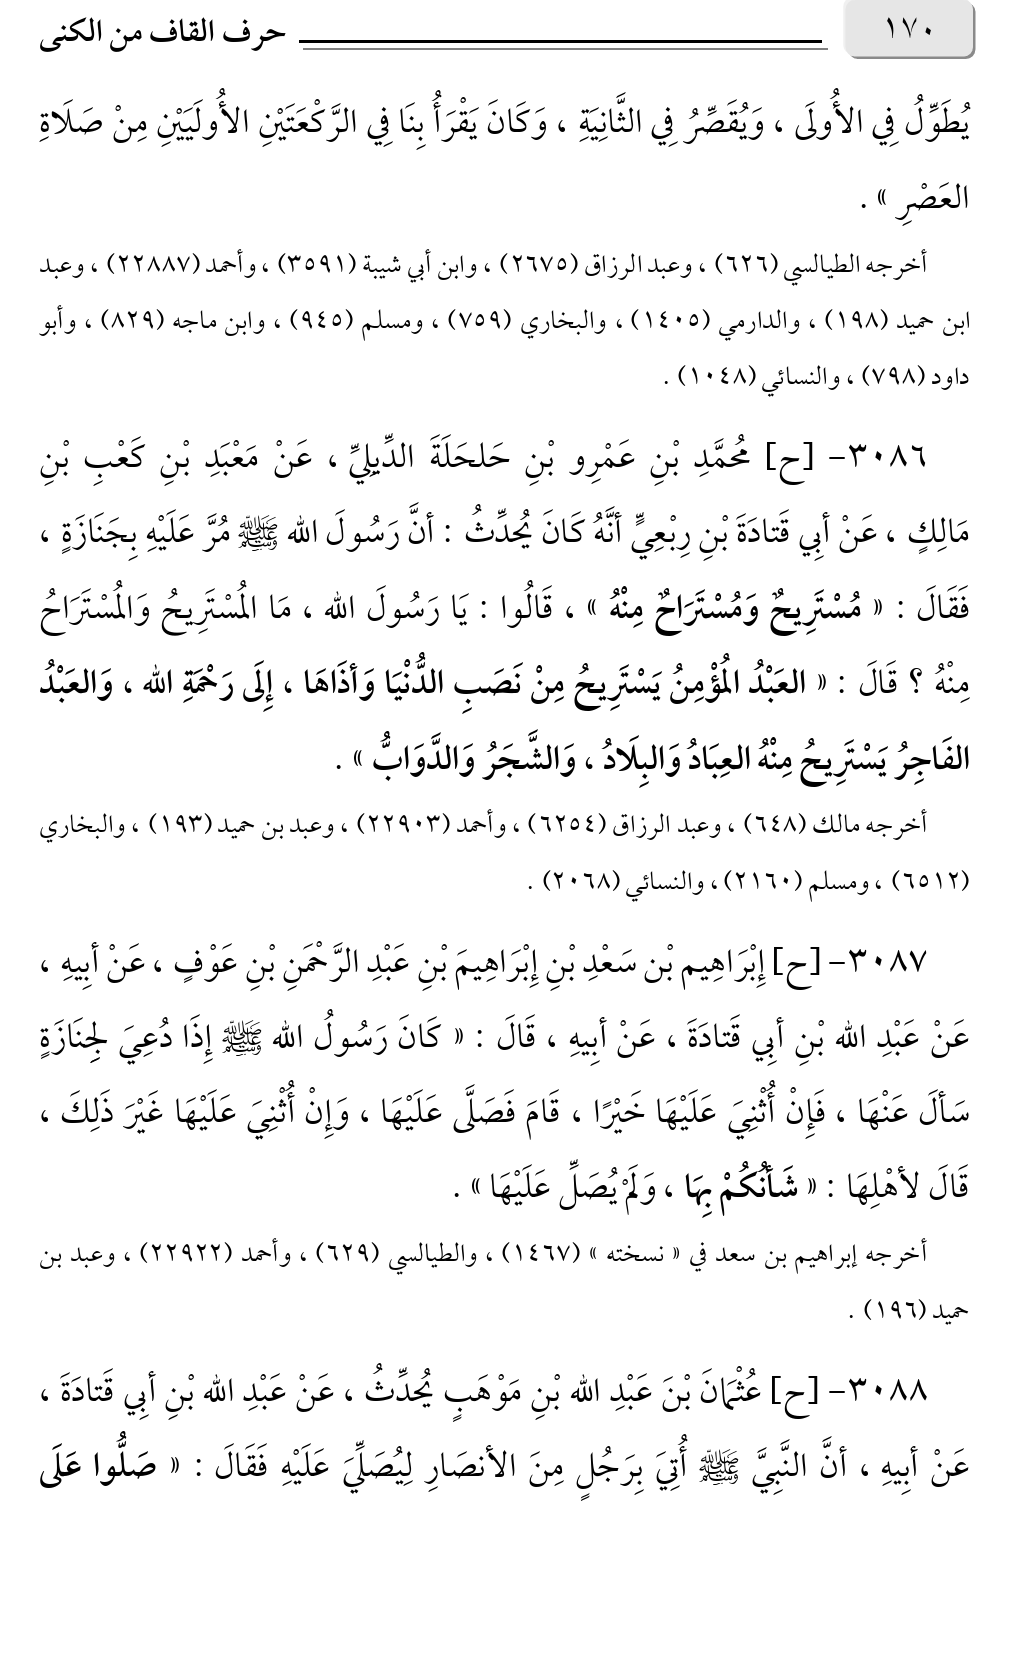 ١٧٠
حرف القاف من الكنى
يُطَوِّلُ فِي الأُولَى ، وَيُقَصِّرُ فِي الثَّانِيَةِ ، وَكَانَ يَقْرَأُ بِنَا فِي الرَّكْعَتَيْنِ الأُولَيَيْنِ مِنْ صَلَاةِ
العَصْرِ » .
أخرجه الطيالسي (٦٢٦) ، وعبد الرزاق (٢٦٧٥) ، وابن أبي شيبة (٣٥٩١) ، وأحمد (٢٢٨٨٧) ، وعبد
ابن حميد (١٩٨) ، والدارمي (١٤٠٥) ، والبخاري (٧٥٩) ، ومسلم (٩٤٥) ، وابن ماجه (٨٢٩) ، وأبو
داود (٧٩٨) ، والنسائي (١٠٤٨) .
٣٠٨٦- [ح] مُحَمَّدِ بْنِ عَمْرِو بْنِ حَلحَلَةَ الدِّيلِيِّ ، عَنْ مَعْبَدِ بْنِ كَعْبِ بْنِ
مَالِكٍ ، عَنْ أبِي قَتادَةَ بْنِ رِبْعِيٍّ أنَّهُ كَانَ يُحدِّثُ : أنَّ رَسُولَ الله ﷺ مُرَّ عَلَيْهِ بِجَنَازَةٍ ،
فَقَالَ : « مُسْتَرِيحٌ وَمُسْتَرَاحٌ مِنْهُ » ، قَالُوا : يَا رَسُولَ الله ، مَا المُسْتَرِيحُ وَالمُسْتَرَاحُ
مِنْهُ ؟ قَالَ : « العَبْدُ المُؤْمِنُ يَسْتَرِيحُ مِنْ نَصَبِ الدُّنْيَا وَأذَاهَا ، إِلَى رَحْمَةِ الله ، وَالعَبْدُ
الفَاجِرُ يَسْتَرِيحُ مِنْهُ العِبَادُ وَالبِلَادُ ، وَالشَّجَرُ وَالدَّوَابُّ » .
أخرجه مالك (٦٤٨) ، وعبد الرزاق (٦٢٥٤) ، وأحمد (٢٢٩٠٣) ، وعبد بن حميد (١٩٣) ، والبخاري
(٦٥١٢) ، ومسلم (٢١٦٠) ، والنسائي (٢٠٦٨) .
٣٠٨٧- [ح] إِبْرَاهِيم بْن سَعْدِ بْنِ إِبْرَاهِيمَ بْنِ عَبْدِ الرَّحْمَنِ بْنِ عَوْفٍ ، عَنْ أبِيهِ ،
عَنْ عَبْدِ الله بْنِ أبِي قَتادَةَ ، عَنْ أبِيهِ ، قَالَ : « كَانَ رَسُولُ الله ﷺ إِذَا دُعِيَ لِجِنَازَةٍ
سَألَ عَنْهَا ، فَإِنْ أُثْنِيَ عَلَيْهَا خَيْرًا ، قَامَ فَصَلَّى عَلَيْهَا ، وَإِنْ أُثْنِيَ عَلَيْهَا غَيْرَ ذَلِكَ ،
قَالَ لأهْلِهَا : « شَأنُكُمْ بِهَا ، وَلَمْ يُصَلِّ عَلَيْهَا » .
أخرجه إبراهيم بن سعد في « نسخته » (١٤٦٧) ، والطيالسي (٦٢٩) ، وأحمد (٢٢٩٢٢) ، وعبد بن
حميد (١٩٦) .
٣٠٨٨- [ح] عُثْمَانَ بْنَ عَبْدِ الله بْنِ مَوْهَبٍ يُحدِّثُ ، عَنْ عَبْدِ الله بْنِ أبِي قَتادَةَ ،
عَنْ أبِيهِ ، أنَّ النَّبِيَّ ﷺ أُتِيَ بِرَجُلٍ مِنَ الأنصَارِ لِيُصَلِّيَ عَلَيْهِ فَقَالَ : « صَلُّوا عَلَى